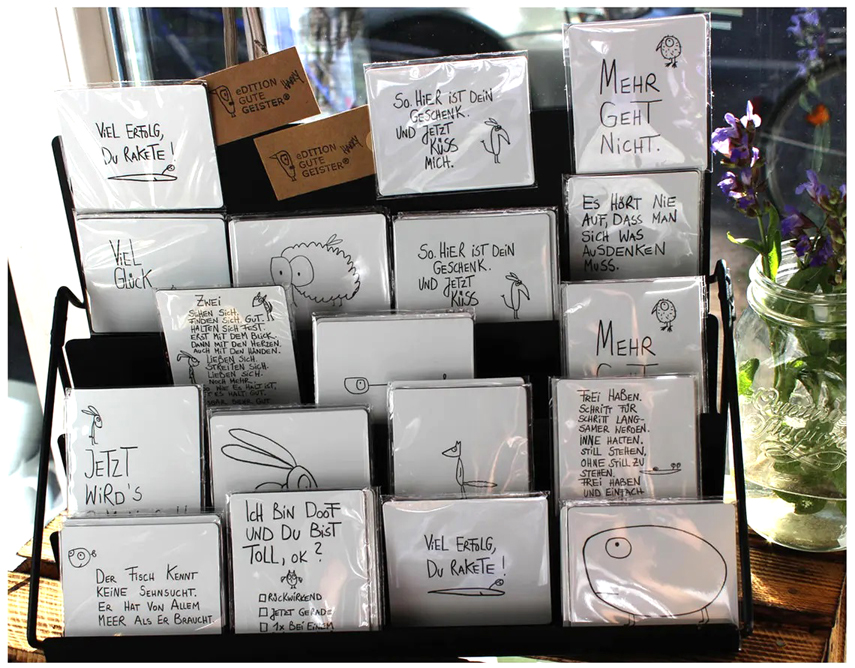 VIEL ERFOLG,
DU RAKETE!
eDITION
GUTE
GEISTER®
HARRY
eDITION
GUTE
GEISTER®
HARRY
So. HIER IST DEIN
GESCHENK.
UND JETZT
KÜSS
MICH.
MEHR
GEHT
NICHT.
VIEL
GLÜCK
So. HIER IST DEIN
GESCHENK.
UND JETZT
KÜSS
ES HÖRT NIE
AUF, DASS MAN
SICH WAS
AUSDENKEN
MUSS.
ZWEI
SEHEN SICH.
FINDEN SICH. GUT.
HALTEN SICH FEST.
ERST MIT DEM BLICK.
DANN MIT DEN HERZEN.
AUCH MIT DEN HÄNDEN.
LIEBEN SICH.
STREITEN SICH.
LIEBEN SICH.
NOCH MEHR.
WIE ES HALT IST,
ES HÄLT. GUT.
SOGAR SEHR GUT.
MEHR
JETZT
WIRD'S
FREI HABEN.
SCHRITT FÜR
SCHRITT LANG-
SAMER WERDEN.
INNE HALTEN.
STILL STEHEN,
OHNE STILL ZU
STEHEN.
FREI HABEN
UND EINFACH
DER FISCH KENNT
KEINE SEHNSUCHT.
ER HAT VON ALLEM
MEER ALS ER BRAUCHT.
ICH BIN DOOF
UND DU BIST
TOLL, OK?
RÜCKWIRKEND
JETZT GERADE
1x BEI EINEM
VIEL ERFOLG,
DU RAKETE!